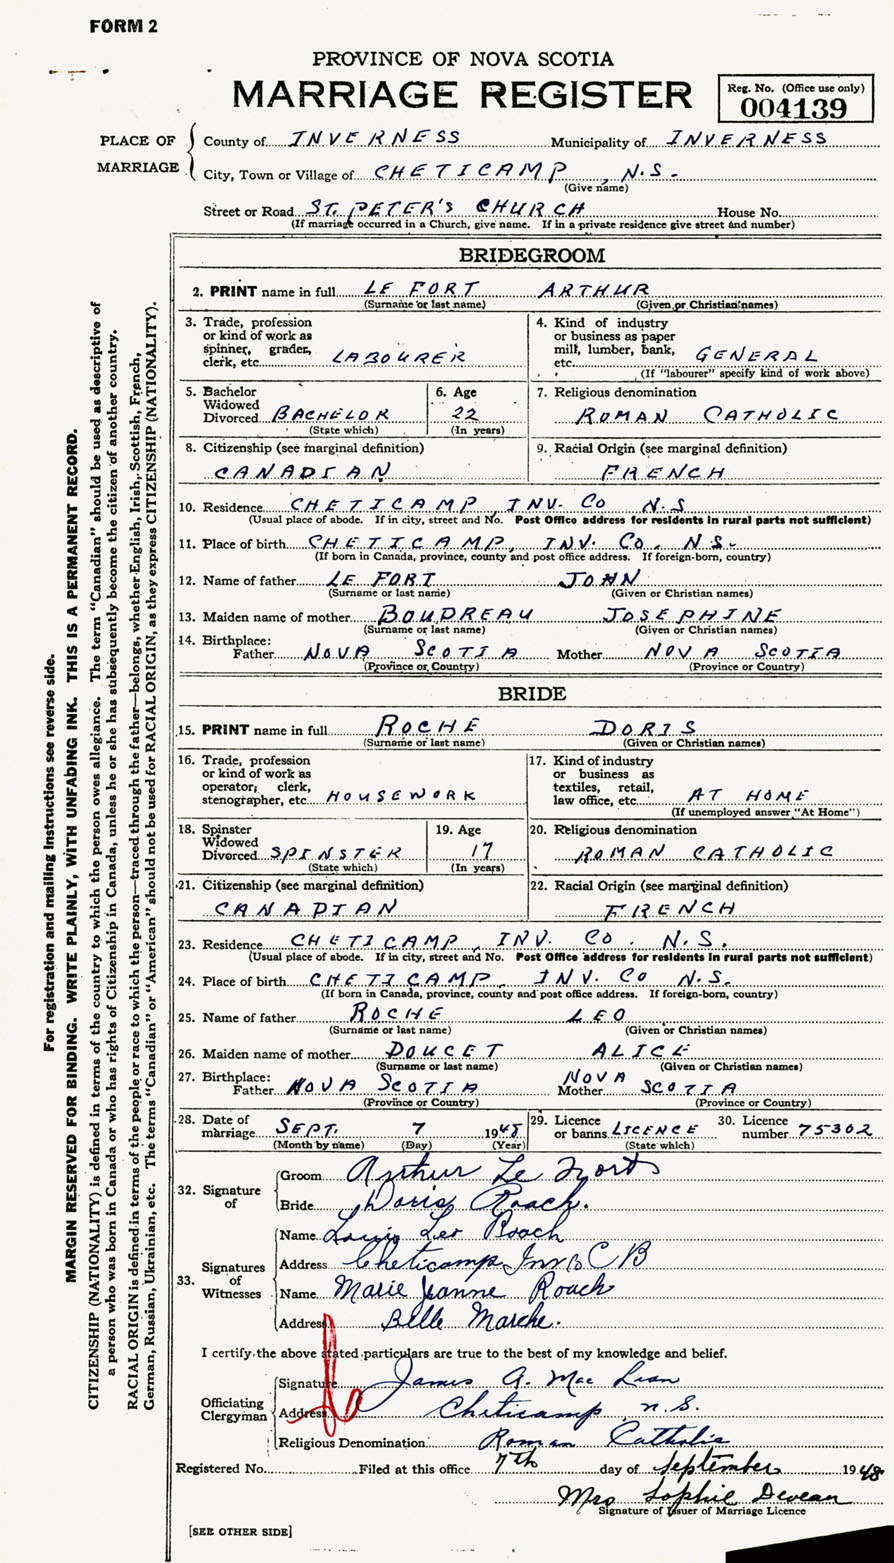 FORM 2
PROVINCE OF NOVA SCOTIA
MARRIAGE REGISTER
Reg. No. (Office use only)
004139
PLACE OF MARRIAGE
County of INVERNESS Municipality of INVERNESS
City, Town or Village of CHETICAMP, N.S.
(Give name)
Street or Road ST. PETER'S CHURCH House No.
(If marriage occurred in a Church, give name. If in a private residence give street and number)
BRIDEGROOM
2. PRINT name in full LE FORT ARTHUR
(Surname or last name) (Given or Christian names)
3. Trade, profession
or kind of work as
spinner, grader,
clerk, etc. LABOURER
4. Kind of industry
or business as paper
mill, lumber, bank,
etc. GENERAL
(If "labourer" specify kind of work above)
5. Bachelor
Widowed
Divorced BACHELOR
(State which)
6. Age
22
(In years)
7. Religious denomination
ROMAN CATHOLIC
8. Citizenship (see marginal definition)
CANADIAN
9. Racial Origin (see marginal definition)
FRENCH
10. Residence CHETICAMP, INV. CO N.S
(Usual place of abode. If in city, street and No. Post Office address for residents in rural parts not sufficient)
11. Place of birth CHETICAMP, INV. CO. N.S.
(If born in Canada, province, county and post office address. If foreign-born, country)
12. Name of father LE FORT JOHN
(Surname or last name) (Given or Christian names)
13. Maiden name of mother BOUDREAU JOSEPHINE
(Surname or last name) (Given or Christian names)
14. Birthplace:
Father NOVA SCOTIA Mother NOVA SCOTIA
(Province or Country) (Province or Country)
BRIDE
15. PRINT name in full ROCHE DORIS
(Surname or last name) (Given or Christian names)
16. Trade, profession
or kind of work as
operator, clerk,
stenographer, etc. HOUSEWORK
17. Kind of industry
or business as
textiles, retail,
law office, etc. AT HOME
(If unemployed answer "At Home")
18. Spinster
Widowed
Divorced SPINSTER
(State which)
19. Age
17
(In years)
20. Religious denomination
ROMAN CATHOLIC
21. Citizenship (see marginal definition)
CANADIAN
22. Racial Origin (see marginal definition)
FRENCH
23. Residence CHETICAMP, INV. CO. N.S.
(Usual place of abode. If in city, street and No. Post Office address for residents in rural parts not sufficient)
24. Place of birth CHETICAMP, INV. CO N.S.
(If born in Canada, province, county and post office address. If foreign-born, country)
25. Name of father ROCHE LEO
(Surname or last name) (Given or Christian names)
26. Maiden name of mother DOUCET ALICE
(Surname or last name) (Given or Christian names)
27. Birthplace:
Father NOVA SCOTIA Mother NOVA SCOTIA
(Province or Country) (Province or Country)
28. Date of
marriage SEPT. 7 1948
(Month by name) (Day) (Year)
29. Licence
or banns LICENCE
(State which)
30. Licence
number 75302
32. Signature of
Groom Arthur Le Fort
Bride Doris Roach.
33. Signatures of Witnesses
Name Louis Leo Roach
Address Cheticamp Inv C B
Name Marie Jeanne Roach
Address Belle Marche.
I certify the above stated particulars are true to the best of my knowledge and belief.
Officiating Clergyman
Signature James A. Mac Lean
Address Cheticamp N.S.
Religious Denomination Roman Catholic
Registered No. Filed at this office 7th day of September 1948
Mrs Sophie Deveau
Signature of Issuer of Marriage Licence
[SEE OTHER SIDE]
For registration and mailing instructions see reverse side.
MARGIN RESERVED FOR BINDING. WRITE PLAINLY, WITH UNFADING INK. THIS IS A PERMANENT RECORD.
CITIZENSHIP (NATIONALITY) is defined in terms of the country to which the person owes allegiance. The term "Canadian" should be used as descriptive of
a person who was born in Canada or who has rights of Citizenship in Canada, unless he or she has subsequently become the citizen of another country.
RACIAL ORIGIN is defined in terms of the people or race to which the person—traced through the father—belongs, whether English, Irish, Scottish, French,
German, Russian, Ukrainian, etc. The terms "Canadian" or "American" should not be used for RACIAL ORIGIN, as they express CITIZENSHIP (NATIONALITY).